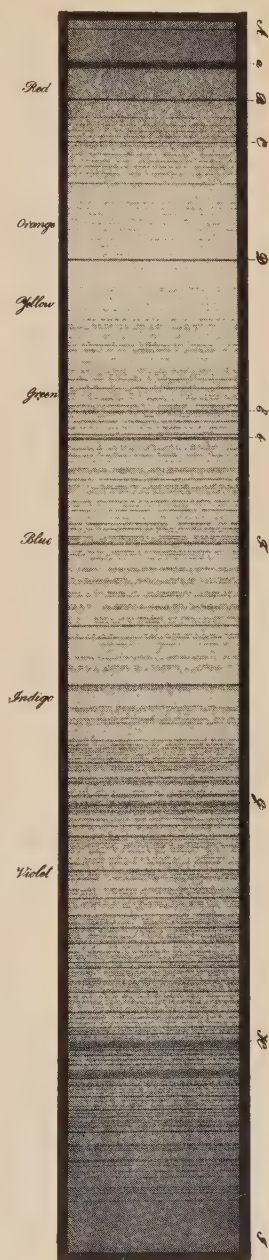 Red
Orange
Yellow
Green
Blue
Indigo
Violet
A
a
B
C
D
E
b
F
G
H